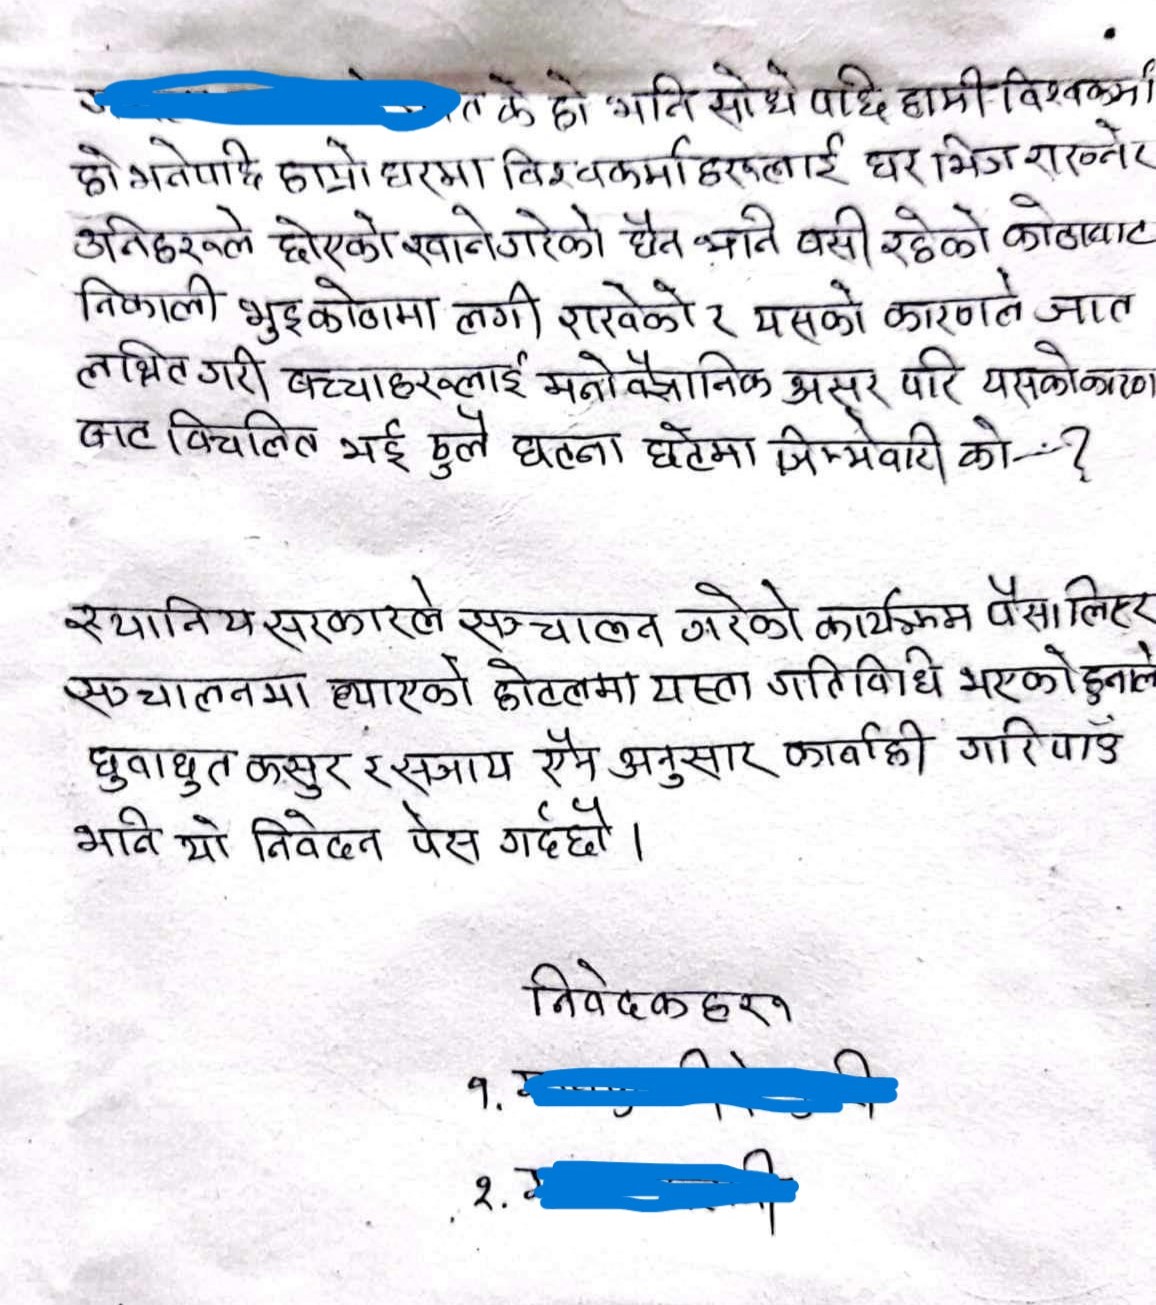 त के हो भनि सोधे पछि हामी विश्वकर्मा
हो भनेपछि हाम्रो घरमा विश्वकर्माहरूलाई घर भित्र राख्ने र
उनिहरूले छोएको खाने गरेको छैन भनि बसी रहेको कोठाबाट
निकाली भुइकोठामा लगी राखेको र यसको कारणले जात
लक्षित गरी बच्चाहरूलाई मनोवैज्ञानिक असर पारि यसको कारण
बाट विचलित भई ठुलै घटना घटेमा जिम्मेवारी को --?
स्थानिय सरकारले सञ्चालन गरेको कार्यक्रम पैसा लिएर
सञ्चालनमा ल्याएको होटलमा यस्ता गतिविधि भएको हुनाले
छुवाछुत कसुर र सजाय ऐन अनुसार कार्वाही गरि पाउँ
भनि यो निवेदन पेस गर्दछौं ।
निवेदकहरू
१.
२.